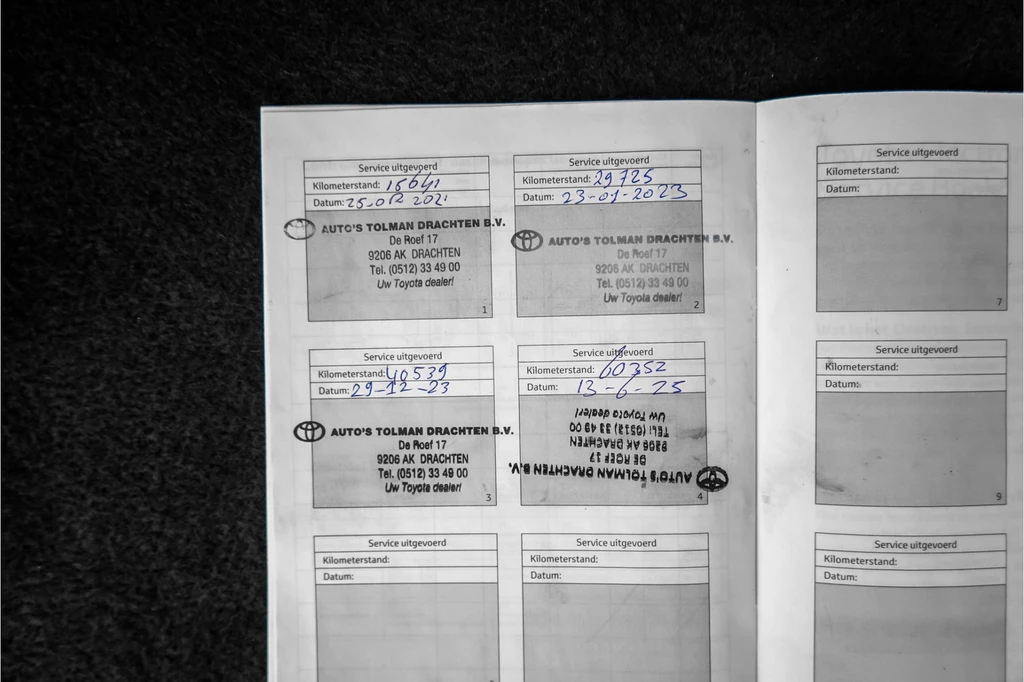 Service uitgevoerd
Kilometerstand: 15641
Datum: 25-02 2021
AUTO'S TOLMAN DRACHTEN B.V.
De Roef 17
9206 AK DRACHTEN
Tel. (0512) 33 49 00
Uw Toyota dealer!
1
Service uitgevoerd
Kilometerstand: 29725
Datum: 23-01-2023
AUTO'S TOLMAN DRACHTEN B.V.
De Roef 17
9206 AK DRACHTEN
Tel. (0512) 33 49 00
Uw Toyota dealer!
2
Service uitgevoerd
Kilometerstand: 40539
Datum: 29-12-23
AUTO'S TOLMAN DRACHTEN B.V.
De Roef 17
9206 AK DRACHTEN
Tel. (0512) 33 49 00
Uw Toyota dealer!
3
Service uitgevoerd
Kilometerstand: 60352
Datum: 13-6-25
AUTO'S TOLMAN DRACHTEN B.V.
DE ROEF 17
9206 AK DRACHTEN
TEL: (0512) 33 49 00
Uw Toyota dealer!
4
Service uitgevoerd
Kilometerstand:
Datum:
Service uitgevoerd
Kilometerstand:
Datum:
Service uitgevoerd
Kilometerstand:
Datum:
7
Service uitgevoerd
Kilometerstand:
Datum:
9
Service uitgevoerd
Kilometerstand:
Datum: